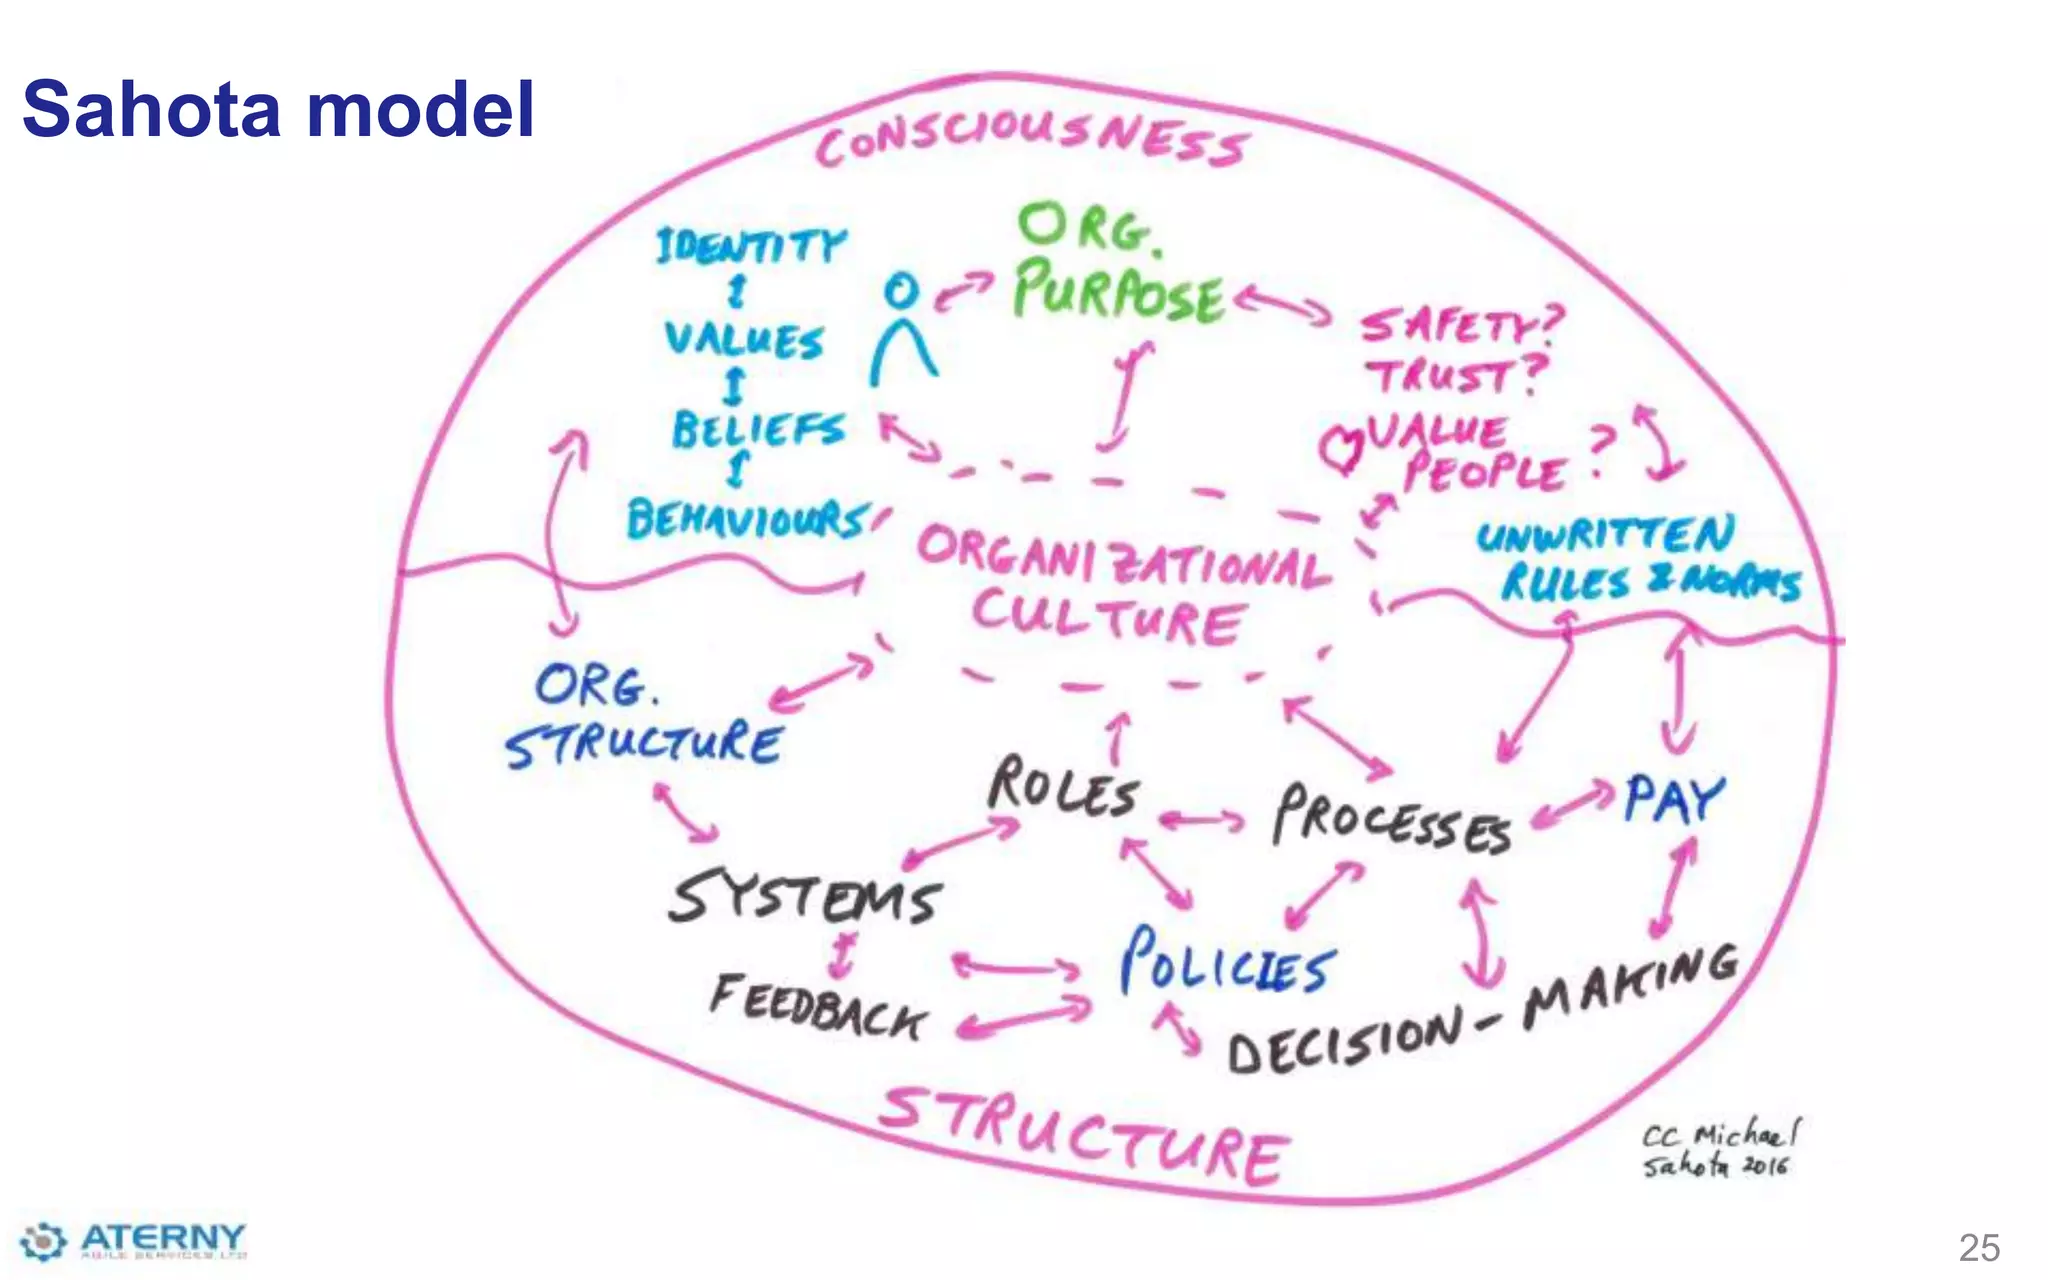 Sahota model
CONSCIOUSNESS
IDENTITY
VALUES
BELIEFS
BEHAVIOURS
ORG.
PURPOSE
SAFETY?
TRUST?
VALUE
PEOPLE?
UNWRITTEN
RULES & NORMS
ORGANIZATIONAL
CULTURE
ORG.
STRUCTURE
ROLES
PROCESSES
PAY
SYSTEMS
FEEDBACK
POLICIES
DECISION-MAKING
STRUCTURE
CC Michael
Sahota 2016
ATERNY
AGILE SERVICES LTD
25